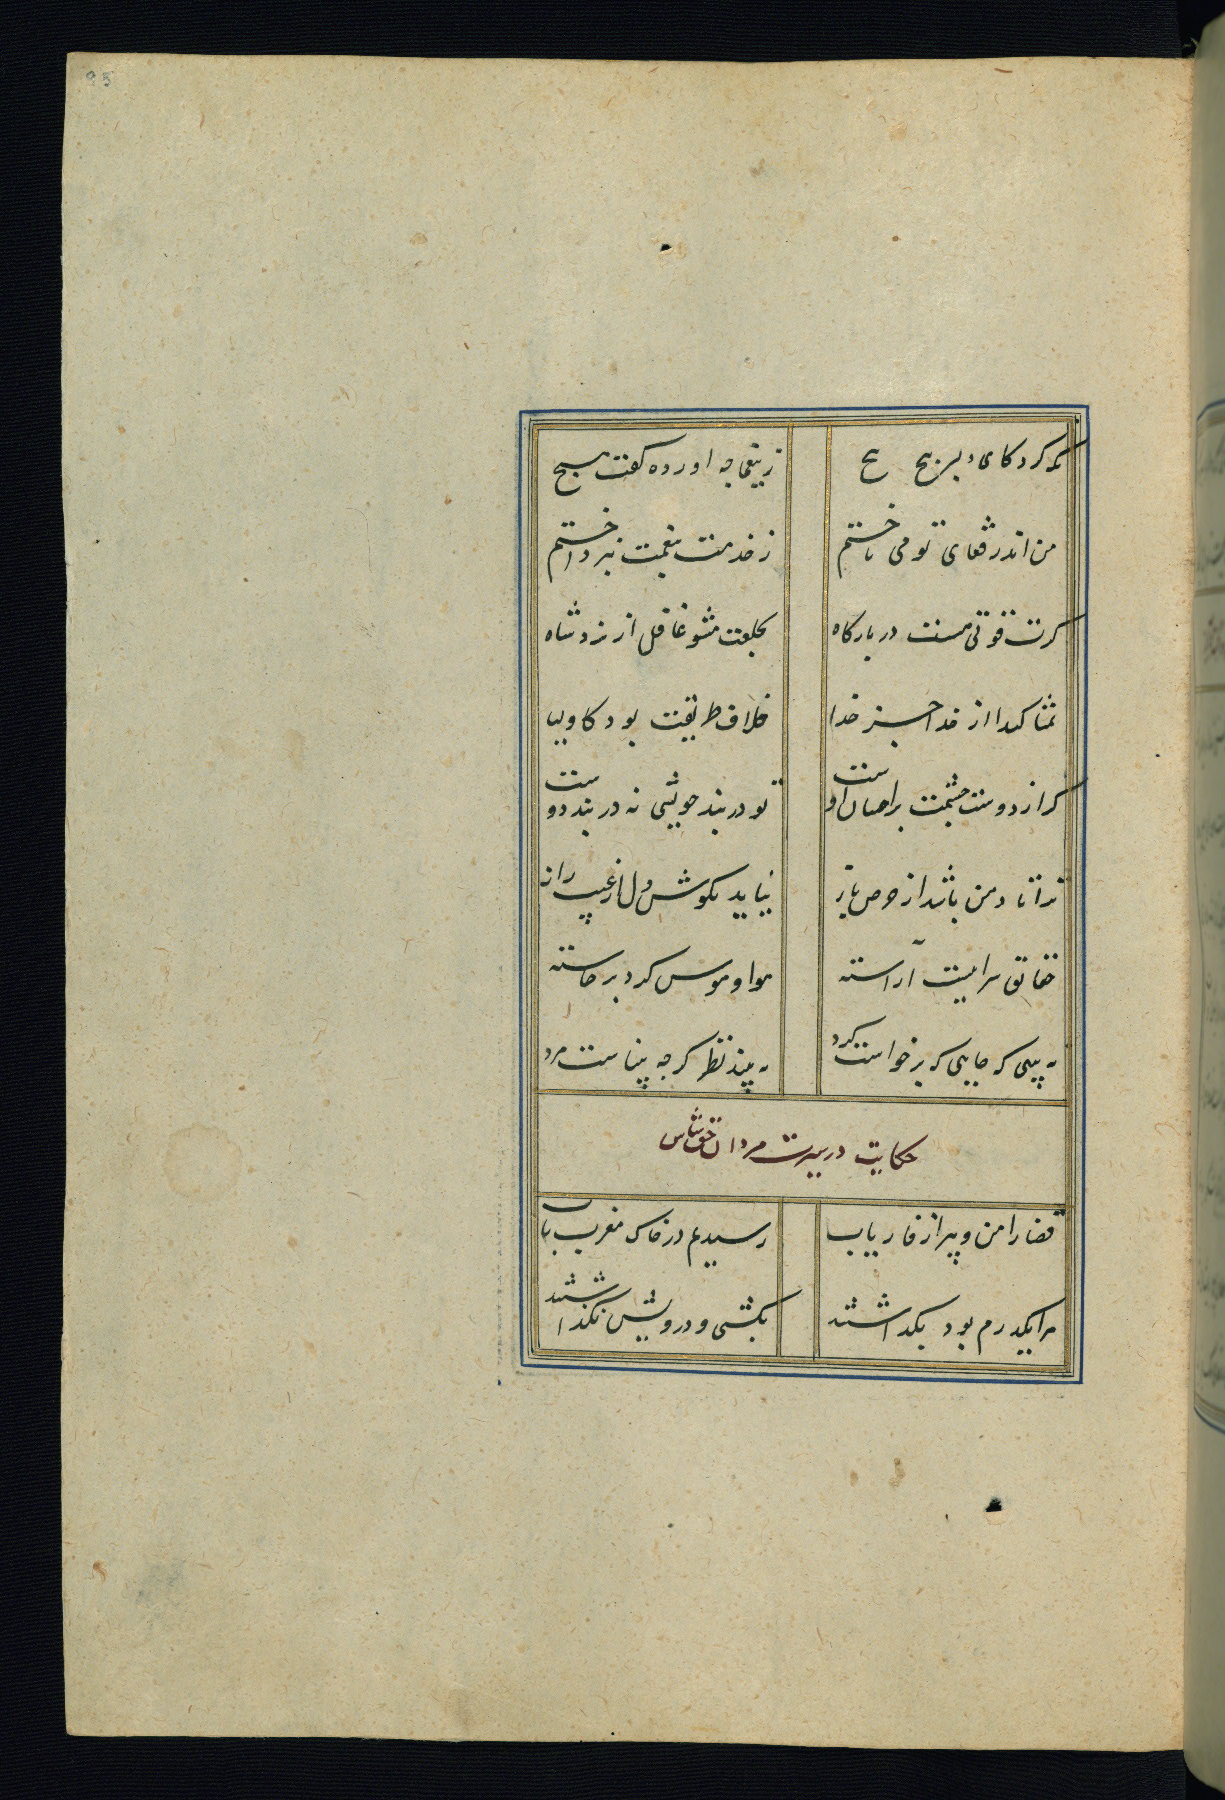 95
نگه کرد کای دلبر پیچ پیچ
ز یغما چه آورده گفت هیچ
من اندر قفای تو می تاختم
ز خدمت بنعمت نپرداختم
گرت قربتی هست در بارگاه
بخلعت مشو غافل از نزد شاه
تمنا کند از خدا جز خدا
خلاف طریقت بود کاولیا
گر از دوست چشمت بر احسان اوست
تو در بند خویشی نه در بند دوست
ترا تا دهن باشد از حرص باز
نیاید بگوش دل از غیب راز
حقایق سراییست آراسته
هوا و هوس گرد برخاسته
نه بینی که جایی که برخواست گرد
نه بیند نظر گرچه بیناست مرد
حکایت در سیرت مردان حق شناس
قضا را من و پیر از فاریاب
رسیدیم در خاک مغرب بآب
مرا یکدرم بود بگذاشتند
بکشتی و درویش نگذاشتند